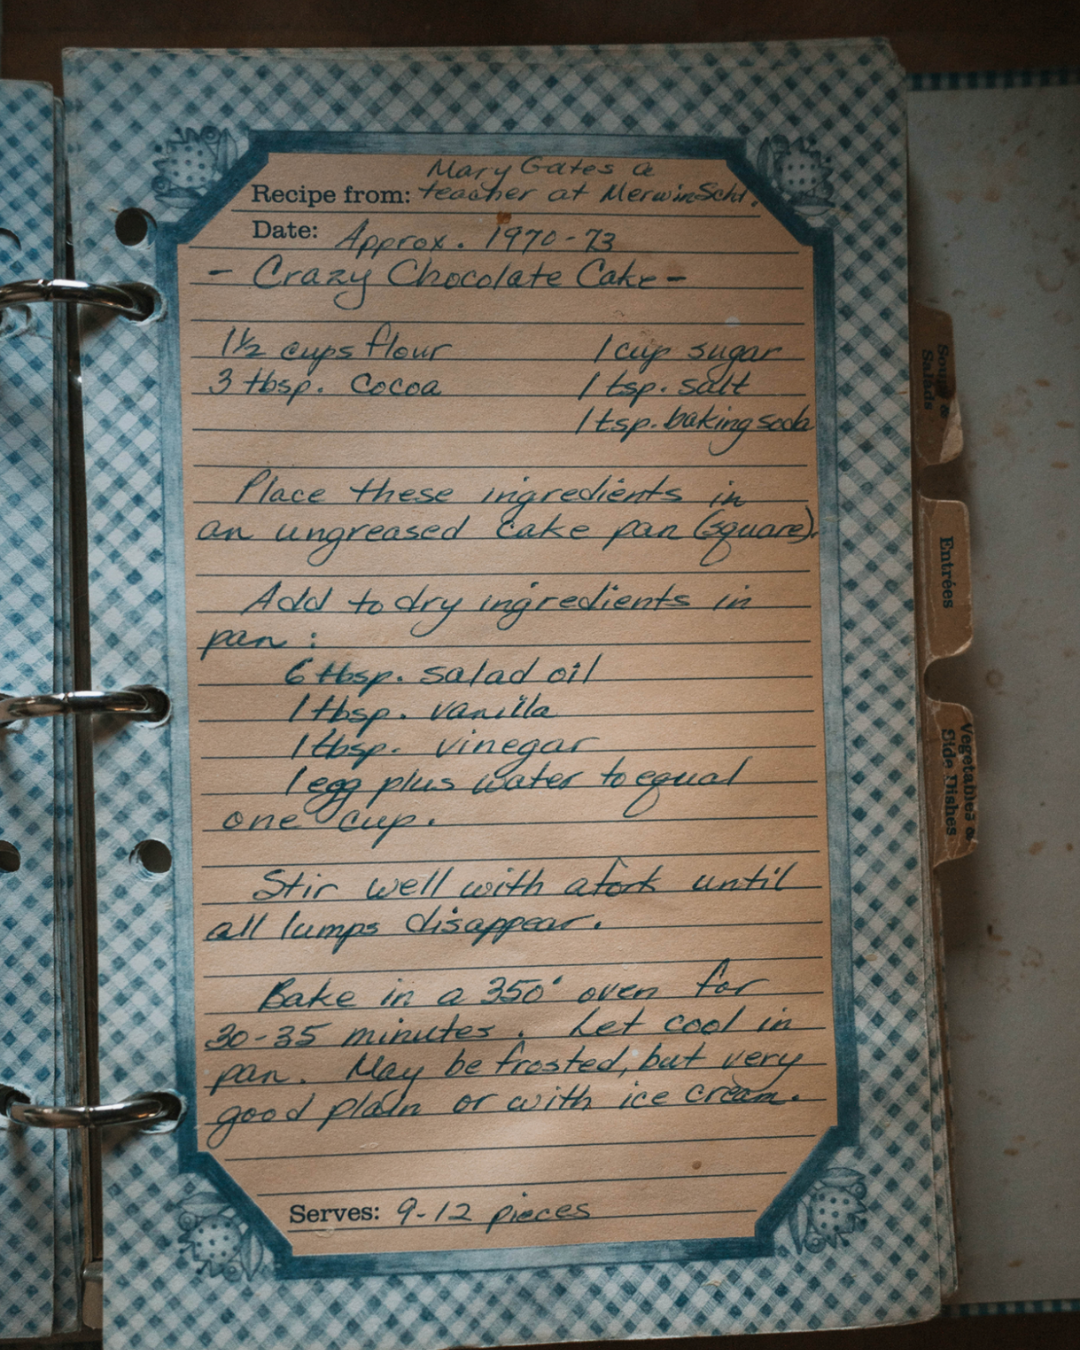 Mary Gates a
Recipe from: teacher at Merwin Schl.
Date: Approx. 1970-73
- Crazy Chocolate Cake -
1½ cups flour 1 cup sugar
3 tbsp. cocoa 1 tsp. salt
1 tsp. baking soda
Place these ingredients in
an ungreased cake pan (square).
Add to dry ingredients in
pan :
6 tbsp. salad oil
1 tbsp. vanilla
1 tbsp. vinegar
1 egg plus water to equal
one cup.
Stir well with a fork until
all lumps disappear.
Bake in a 350° oven for
30-35 minutes. Let cool in
pan. May be frosted, but very
good plain or with ice cream.
Serves: 9-12 pieces
Soups &
Salads
Entrées
Vegetables &
Side Dishes